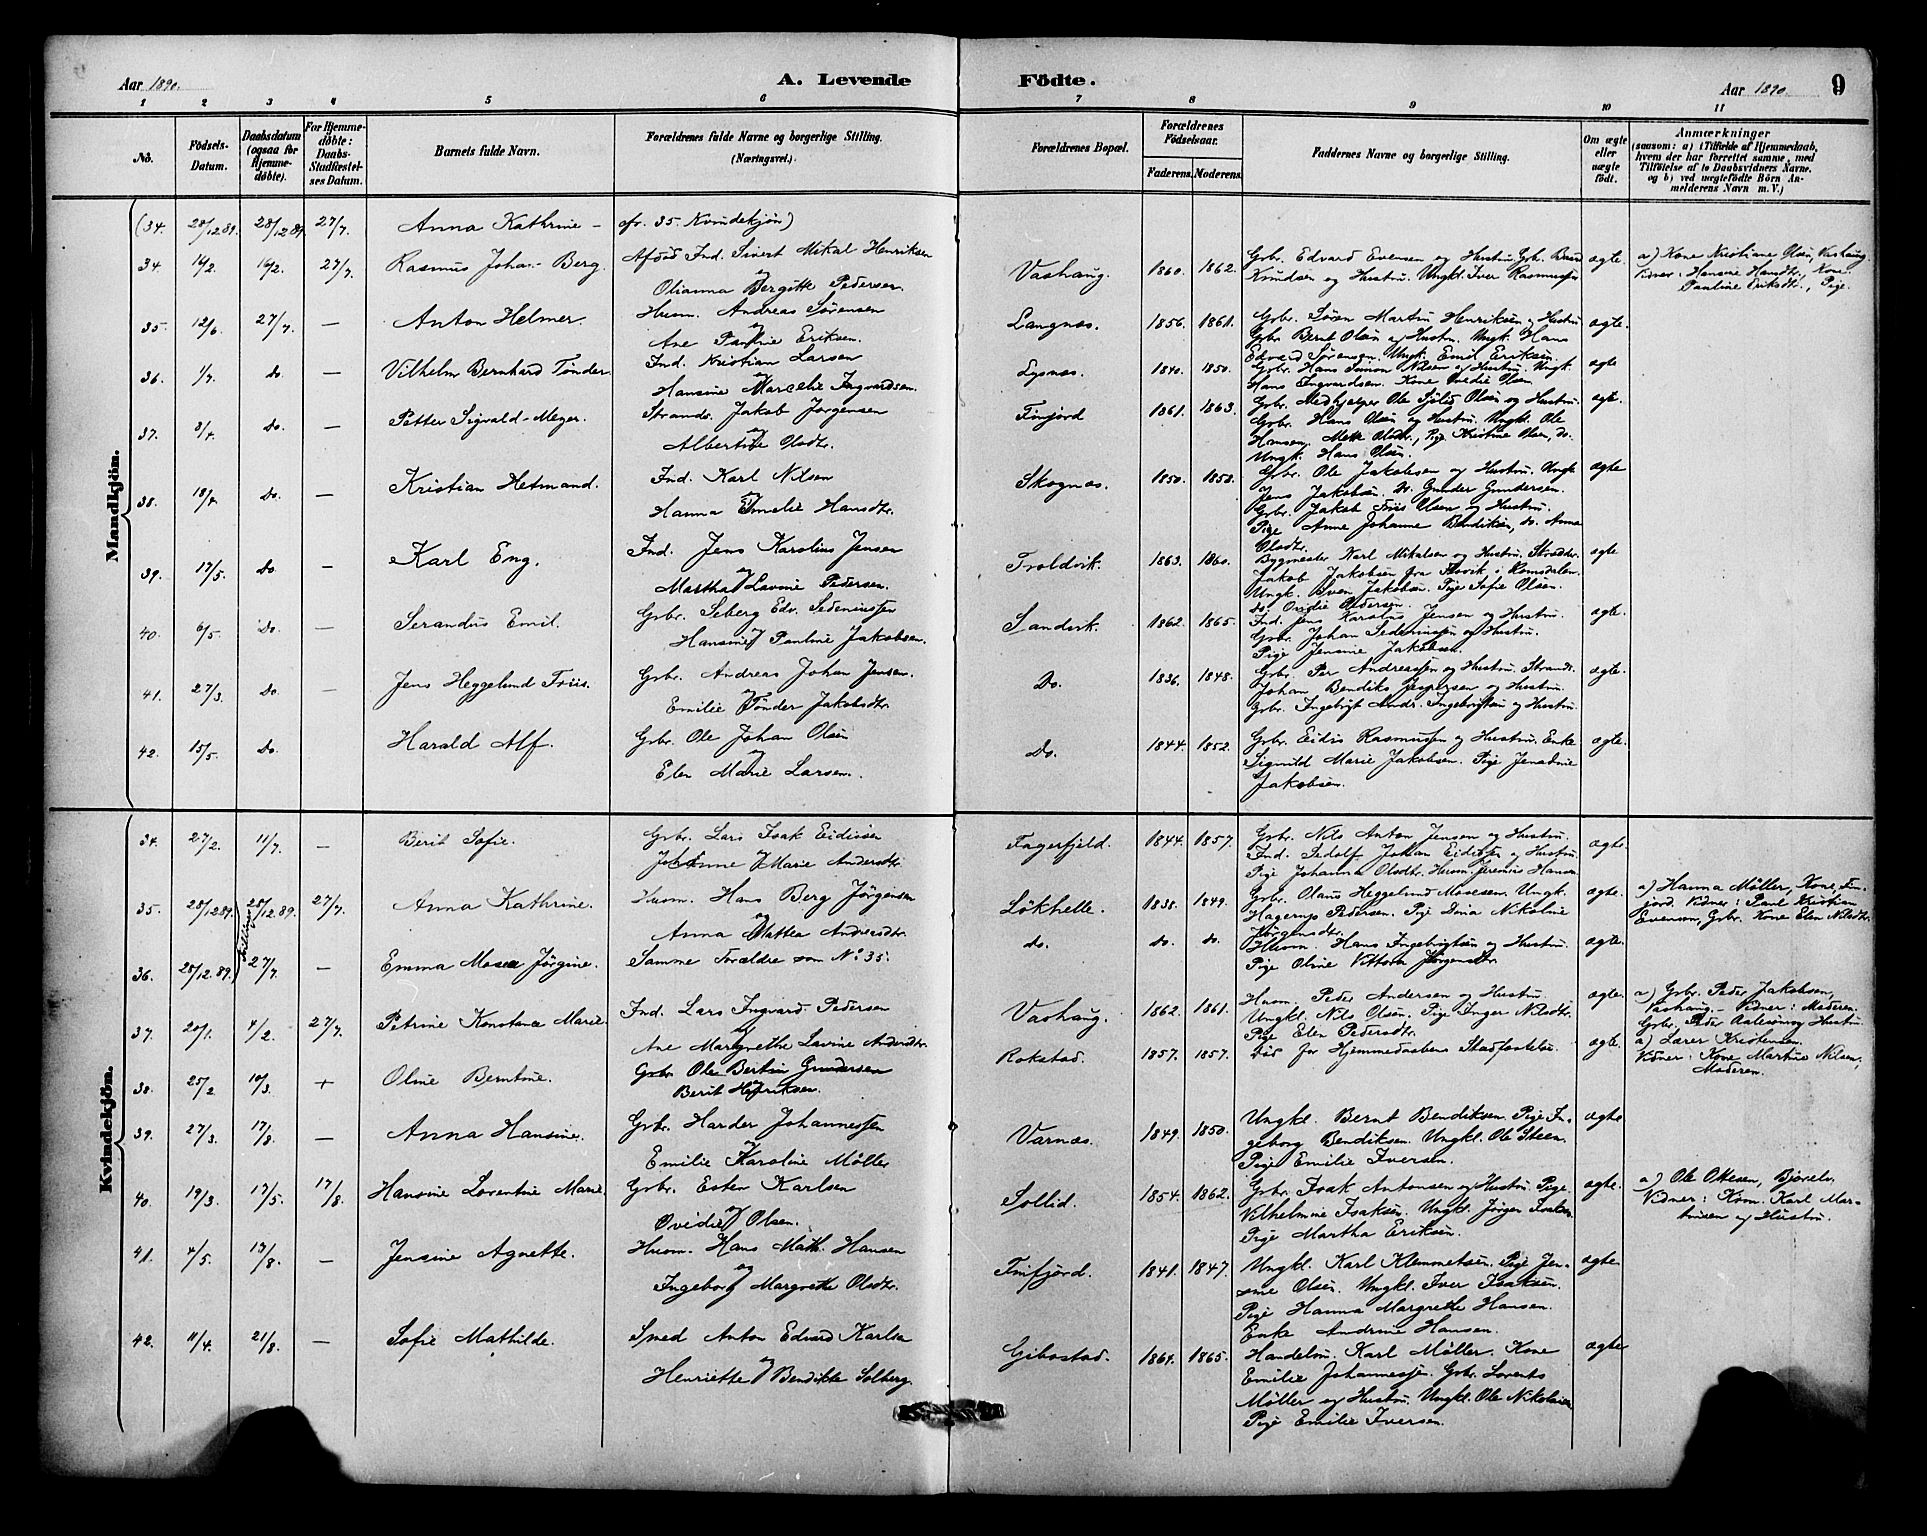 Aar 1890.
A. Levende
Födte.
Aar 1890.
9
1 2 3 4 5 6 7 8 9 10 11
No.
Födsels-Datum.
Daabsdatum (ogsaa for Hjemme-döbte).
For Hjemme-döbte: Daabs-Stadfæstel-ses Datum.
Barnets fulde Navn.
Forældrenes fulde Navne og borgerlige Stilling.
(Næringsvei.)
Forældrenes Bopæl.
Forældrenes Födselsaar.
Faderens. Moderens.
Faddernes Navne og borgerlige Stilling.
Om ægte eller uægte födt.
Anmærkninger
(saasom: a) i Tilfælde af Hjemmedaab,
hvem der har forrettet samme, med
Tilföielse af to Daabsvidners Navne.
og b) ved uægtefödte Börn An-
melderens Navn m. V.)
Mandkjön.
(34. 28/12 89. 28/12 89. 27/7. Anna Kathrine – cfr. 35. Kvindekjøn)
34. 16/2. 16/2. 27/7. Rasmus Johan Berg.
Aføds Ind. Sivert Mikal Henriksen
og
Olianna Bergitte Pedersen.
Vashaug. 1860. 1862.
Gbr. Edvard Evensen og Hustru. Gbr. Baard
Knudsen og Hustru. Ungkl. Iver Rasmussen
ægte.
a) Kone Kristiane Olsen, Vashaug
Vidner: Hansine Hansdtr., Kone
Pauline Eriksdtr., Pige.
35. 12/6. 27/7. – Anton Helmer.
Husm. Andreas Sørensen
og
Ane Pauline Eriksen.
Langnæs. 1856. 1861.
Gbr. Søren Martin Henriksen og Hustru
Gbr. Bernt Olsen og Hustru. Ungk. Hans
Edvard Sørensen. Ungk. Emil Eriksen.
ægte.
36. 1/7. Do. – Vilhelm Bernhard Tønder.
Ind. Kristian Larsen
og
Hansine Marcelie Ingvardsen.
Lysnæs. 1840. 1850.
Gbr. Hans Simon Nilsen og Hustru. Ungk.
Hans Ingvardsen. Kone Ovedie Olsen
ægte
37. Do. – Petter Sigvald Meyer.
Strands. Jakob Jørgensen
og
Albertine Olsdtr.
Finfjord 1861. 1863.
Gbr. Medhjelper Ole Olsen og Hustru.
Gbr. Hans Olsen og Hustru. Ungk. Ole
Hansen. Mette Olsdtr., Pige Kristine Olsen, do.
Ungk. Hans Olsen.
ægte.
38. Do. – Kristian Hetmand.
Ind. Karl Nilsen
og
Hanna Emelie Hansdtr.
Skognæs. 1850. 1850.
Gbr. Ole Jakobsen og Hustru. Ungk
Jens Jakobsen. Do. Gunder Gundersen.
Gbr. Jakob Friis Olsen og Hustru.
Pige Anne Johanne Bendiksen, do. Anna
Olsdtr.
ægte
39. 17/5. Do. – Karl Eng.
Ind. Jens Karolius Jensen
og
Martha Lavine Pedersen.
Troldvik. 1863. 1860.
Bygmester Karl Mikalsen og Hustru.
Jakob Jakobsen fra i Romsdalen.
Ungk. Sven Jakobsen. Pige Sofie Olsen.
do. Ovidie Pedersen.
ægte
40. 6/5. Do. – Serandus Emil.
Gbr. Seberg Edv. Sedeniussen
og
Hansine Pauline Jakobsen.
Sandvik. 1862. 1865.
Ind. Jens Karolius Jensen og Hustru
Gbr. Johan Sedeniussen og Hustru.
Pige Jensine Jakobsen.
ægte.
41. 27/3. Do. – Jens Heggelund Friis.
Gbr. Andreas Johan Jensen.
og
Emilie Tønder Jakobsdtr.
Do. 1836. 1848.
Gbr. Per Andreassen og Hustru. Strands.
Johan Bendiks Jespersen og Hustru.
Gbr. Ingebrigt Andr. Ingebrigtsen og Hustru
ægte.
42. 15/5. Do. Harald Alf.
Gbr. Ole Johan Olsen
og
Elen Marie Larsen.
Do. 1844. 1852.
Gbr. Eidis Rasmussen og Hustru. Enke
Signild Marie Jakobsen. Pige Jensine
Jakobsen.
ægte.
Kvindekjön.
34. 27/2. 11/7. – Berit Sofie.
Gbr. Lars Isak Eidissen
og
Johanne Marie Andersdtr.
Fagerfjeld. 1844. 1857.
Gbr. Nils Anton Jensen og Hustru.
Ind. Pedolf Johan Eidissen og Hustru.
Pige Johanna Olsdtr. Husm. Jeremias Hansen
ægte.
35. 28/12 89. 28/12 89. 27/7. Anna Kathrine.
Husm. Hans Berg Jørgensen
og
Anna Mattea Andersdtr.
Lökhelle. 1838. 1849.
Gbr. Olaus Heggelund Mosesen. Ungk.
Hagerup Pedersen. Pige Dina Nikoline
Jørgensdtr.
ægte.
a) Hanna Møller, Kone, Fin-
fjord. Vidner: Paul Kristian
Evensen, Gbr. Kone Elen Nilsdtr.
Tvilling
36. 28/12 89. 27/7. – Emma Mosea Jørgine.
Samme Forældre som No 35.
do. do. do.
Husm. Hans Ingebrigtsen og Hustru.
Pige Oline Vittoria Jørgensdtr.
ægte.
37. 20/1. 4/2. 27/7. Petrine Konstanse Marie.
Ind. Lars Ingvard Pedersen
og
Ane Margrethe Lavine Andersdtr.
Vashaug. 1862. 1861.
Husm. Peder Andersen og Hustru
Ungkl. Nils Olsen. Pige Inger Nilsdtr.
Pige Elen Pedersdtr.
ægte.
a) Gbr. Peder Jakobsen,
Vashaug. – Vidner: Moderen,
Gbr. Peder og Hustru.
38. 25/2 10/3. + Oline Berntine.
Gbr. Ole Bertin Gundersen
og
Berit Henriksen.
Rokstad. 1857. 1857.
Død før Hjemmedaabens Stadfæstelse.
ægte.
a) Lærer Kristensen.
Vidner: Kone Martine Nilsen,
Moderen.
39. 27/3. 17/8. – Anna Hansine.
Gbr. Harder Johannessen
og
Emilie Karoline Møller
Varnæs. 1849. 1850.
Ungkl. Bernt Bendiksen. Pige In-
geborg Bendiksen. Ungkl. Ole Steen.
Pige Emilie Iversen.
ægte
40. 19/3. 17/5. 17/8. Hansine Lorentine Marie.
Gbr. Esten Karlsen
og
Ovidie Olsen.
Sollid. 1854. 1862.
Gbr. Isak Antonsen og Hustru. Pige
Vilhelmine Isaksen. Ungkl. Jørgen Isaksen
Pige Martha Eriksen.
ægte.
a) Ole Ottesen, Bjørelv
Vidner: Kom. Karl Mar-
tinsen og Hustru.
41. 4/5. 17/8. – Jensine Agnette.
Husm. Hans Math. Hansen
og
Ingeborg Margrethe Olsdtr.
Finfjord. 1841. 1847.
Ungkl. Karl Klemmetsen. Pige Jen-
sine Olsen. Ungkl. Iver Isaksen.
Pige Hanna Margrethe Hansen.
Enke Andrine Hansen.
ægte
42. 11/4. 21/8. – Sofie Mathilde.
Smed Anton Edvard Karlsen
og
Henriette Bendikte Solberg.
Gibostad. 1864. 1865.
Handelsm. Karl Møller. Kone
Emilie Johannessen. Gbr. Lorents
Møller og Hustru. Ungkl. Ole Nikolaisen
Pige Emilie Iversen.
ægte